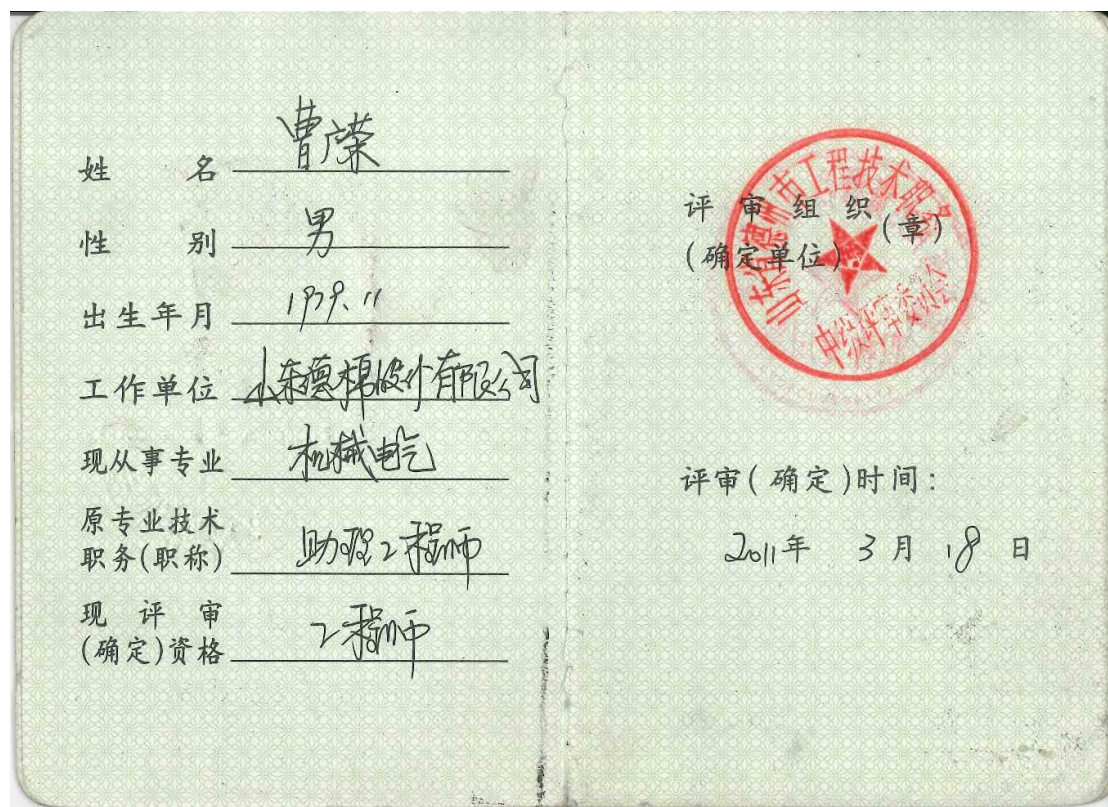 姓名 曹广荣
性别 男
出生年月 1979.11
工作单位 山东德棉股份有限公司
现从事专业 机械电气
原专业技术
职务(职称) 助理工程师
现评审
(确定)资格 工程师
评审组织(章)
(确定单位)
山东省德州市工程技术职务
中级评审委员会
评审(确定)时间:
2011年 3月 18日